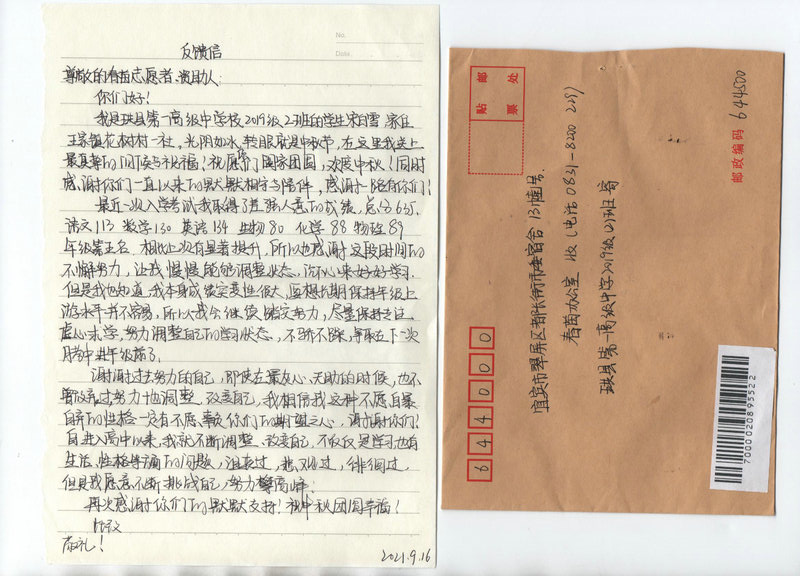 No.
Date.
反馈信
尊敬的春苗志愿者、资助人:
你们好!
我是珙县第一高级中学校2019级2班的学生 家住
王家镇花树村一社,光阴如水,转眼就是中秋节,在这里我送上
最真挚的问候与祝福!祝愿你们阖家团圆,欢度中秋!同时
感谢你们一直以来的默默相守与陪伴,感谢一路有你们!
最近一次入学考试我取得了差强人意的成绩,总分635,
语文113 数学130 英语134 生物80 化学88 物理89
年级第五名.相比上次有显著提升,所以也感谢这段时间的
不懈努力,让我慢慢能够调整状态,沉下心来好好学习.
但是我也知道,我本身成绩突变性很大,要想长期保持年级上
游水平并不容易,所以我会继续踏实努力,尽量保持专注
虚心求学,努力调整自己的学习状态,不骄不躁,争取在下一次
月考中进年级前了.
谢谢过去努力的自己,即使在最灰心、无助的时候,也不
曾放弃过努力,也调整、改变自己,我相信我这种不愿自暴
自弃的性格一定有不愿辜负你们的期望之心,谢谢你们!
自进入高中以来,我就不断调整、改变自己,不仅仅是学习也有
生活、性格等诸的问题,沮丧过,悲观过,徘徊过,
但是我愿意不断挑战自己,努力攀高峰!
再次感谢你们的默默支持!祝中秋团圆幸福!
此致
敬礼!
2021.9.16
贴 邮
票 处
邮政编码 644500
宜宾市翠屏区都长街市委宿舍13幢1号
春苗办公室 收(电话 0831-8220229)
珙县第一高级中学2019级(2)班寄
644000
70000020895522